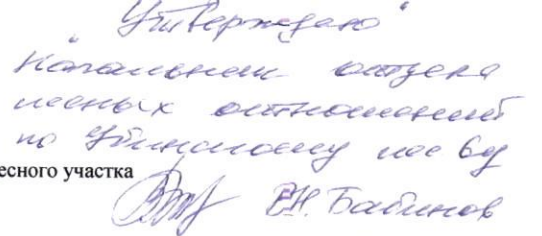 "Утверждаю"
Начальник отдела
лесных отношений
по Убинскому лес-ву
есного участка
Р.Н. Бабинов